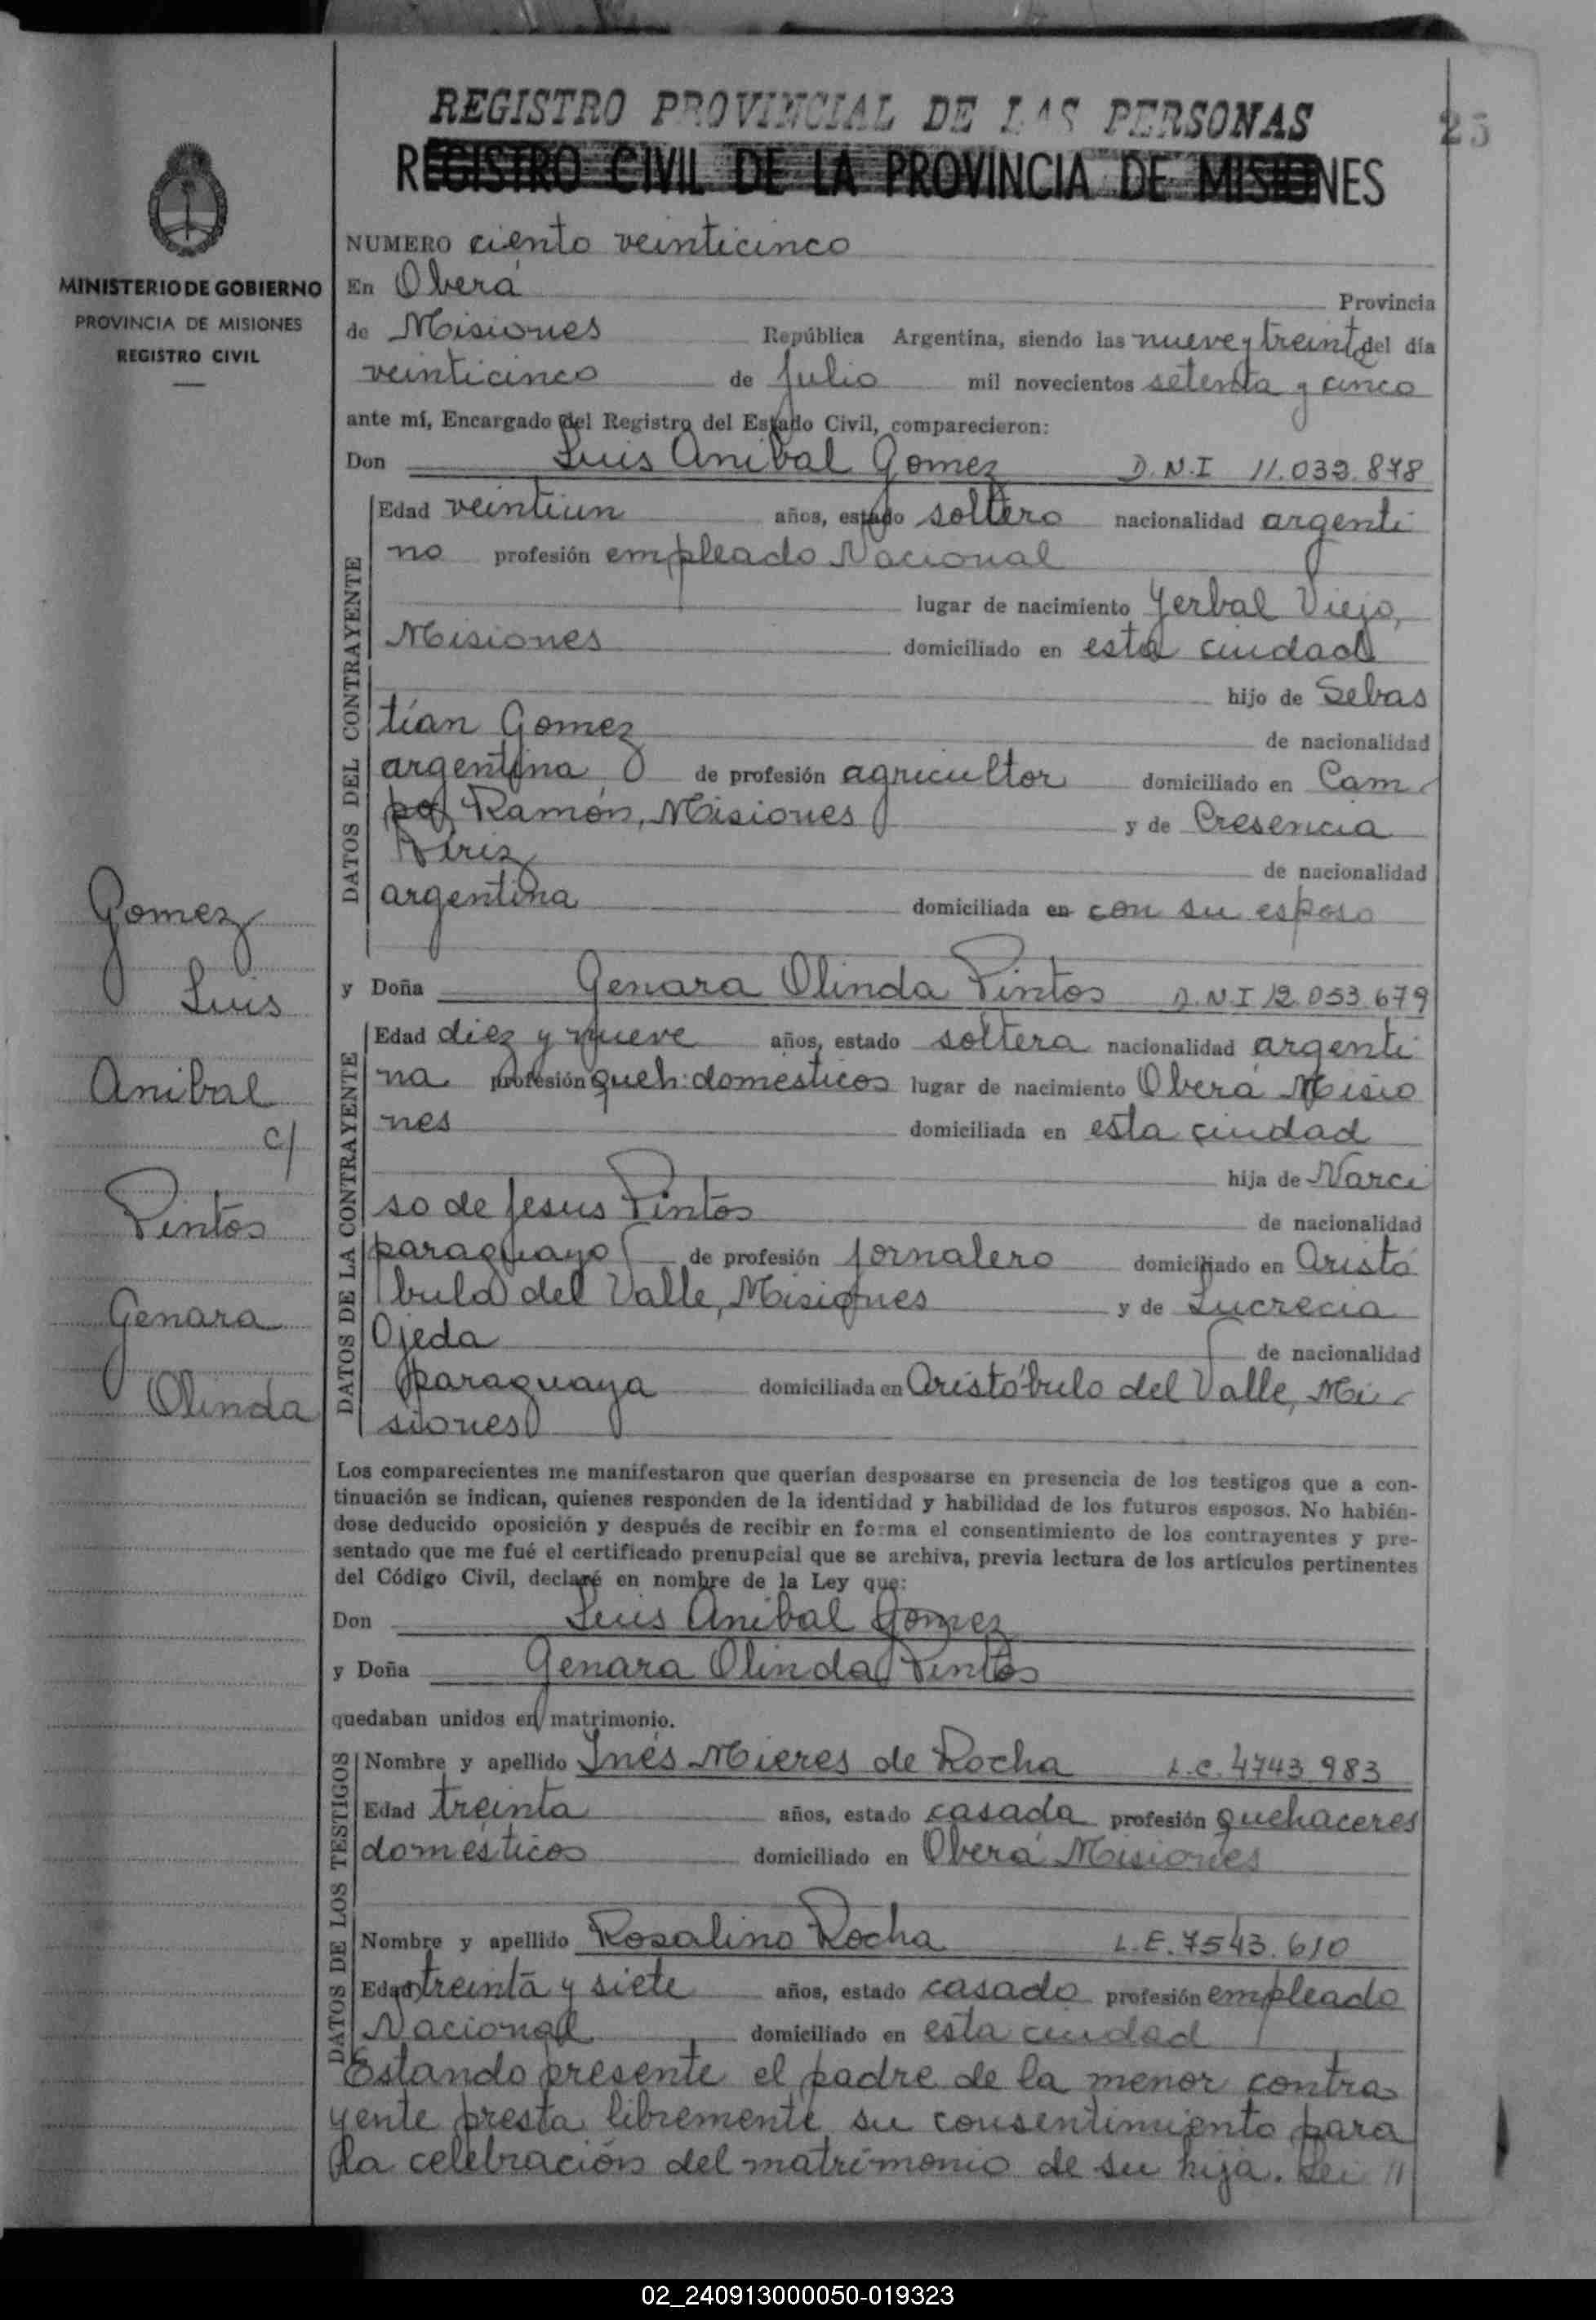 REGISTRO PROVINCIAL DE LAS PERSONAS
25
REGISTRO CIVIL DE LA PROVINCIA DE MISIONES
MINISTERIO DE GOBIERNO
PROVINCIA DE MISIONES
REGISTRO CIVIL
NUMERO ciento veinticinco
En Oberá Provincia
de Misiones República Argentina, siendo las nueve y treinta del día
veinticinco de julio mil novecientos setenta y cinco
ante mí, Encargado del Registro del Estado Civil, comparecieron:
Don Luis Anibal Gomez D.N.I 11.039.878
DATOS DEL CONTRAYENTE
Edad veintiun años, estado soltero nacionalidad argenti
no profesión empleado Nacional
lugar de nacimiento Yerbal Viejo,
Misiones domiciliado en esta ciudad
hijo de Sebas
tían Gomez de nacionalidad
argentina de profesión agricultor domiciliado en Cam
po Ramón, Misiones y de Cresencia
de nacionalidad
argentina domiciliada en con su esposo
y Doña Genara Olinda Pintos D.N.I 12.053.679
DATOS DE LA CONTRAYENTE
Edad diez y nueve años, estado soltera nacionalidad argenti
na profesión queh: domesticos lugar de nacimiento Oberá Misio
nes domiciliada en esta ciudad
hija de Narci
so de Jesus Pintos de nacionalidad
paraguayo de profesión jornalero domiciliado en Aristó
bulo del Valle, Misiones y de Lucrecia
Ojeda de nacionalidad
paraguaya domiciliada en Aristóbulo del Valle, Mi
siones
Los comparecientes me manifestaron que querían desposarse en presencia de los testigos que a con-
tinuación se indican, quienes responden de la identidad y habilidad de los futuros esposos. No habién-
dose deducido oposición y después de recibir en forma el consentimiento de los contrayentes y pre-
sentado que me fué el certificado prenupcial que se archiva, previa lectura de los artículos pertinentes
del Código Civil, declaré en nombre de la Ley que:
Don Luis Anibal Gomez
y Doña Genara Olinda Pintos
quedaban unidos en matrimonio.
DATOS DE LOS TESTIGOS
Nombre y apellido Inés Mieres de Rocha L.C. 4743.983
Edad treinta años, estado casada profesión quehaceres
domésticos domiciliado en Oberá Misiones
Nombre y apellido Rosalino Rocha L.E. 7543.610
Edad treinta y siete años, estado casado profesión empleado
Nacional domiciliado en esta ciudad
Estando presente el padre de la menor contra
yente presta libremente su consentimiento para
la celebración del matrimonio de su hija. Lei //
Gomez
Luis
Anibal
c/
Pintos
Genara
Olinda
02_240913000050-019323